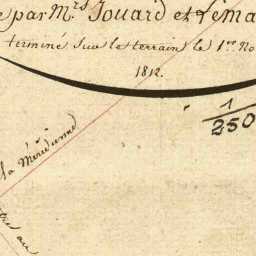 par M.rs Jouard et Léma
terminé sur le terrain le 1.er No
1812.
à 1/250
la Méridienne
au